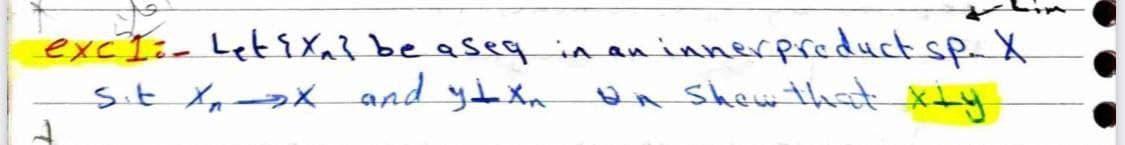 Lim
exc 1:- Let {Xn} be a seq in an inner product sp. X
s.t Xn → X and y ⊥ Xn ∀n Show that x ⊥ y